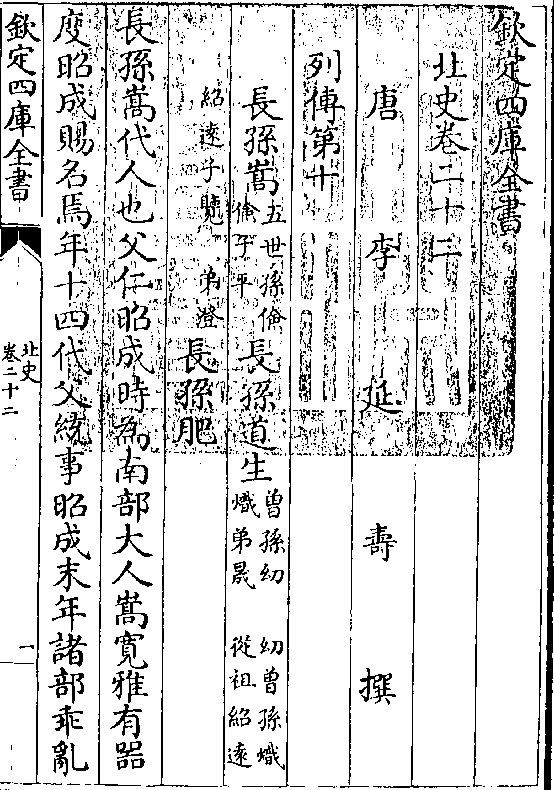 欽定四庫全書
北史卷二十二
唐 李 延 壽 撰
列傳第十
長孫嵩 五世孫儉 儉子平 長孫道生 曾孫幼 幼曾孫熾 熾弟晟 從祖紹遠
紹遠子覽 弟澄 長孫肥
長孫嵩代人也父仁昭成時為南部大人嵩寛雅有器
度昭成賜名焉年十四代父統事昭成末年諸部乖亂
欽定四庫全書
北史
卷二十二
一